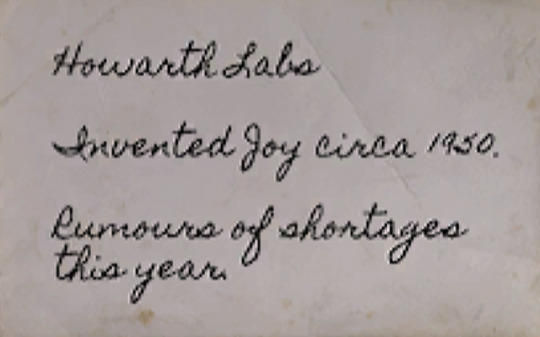 Howarth Labs
Invented Joy circa 1950.
Rumours of shortages
this year.